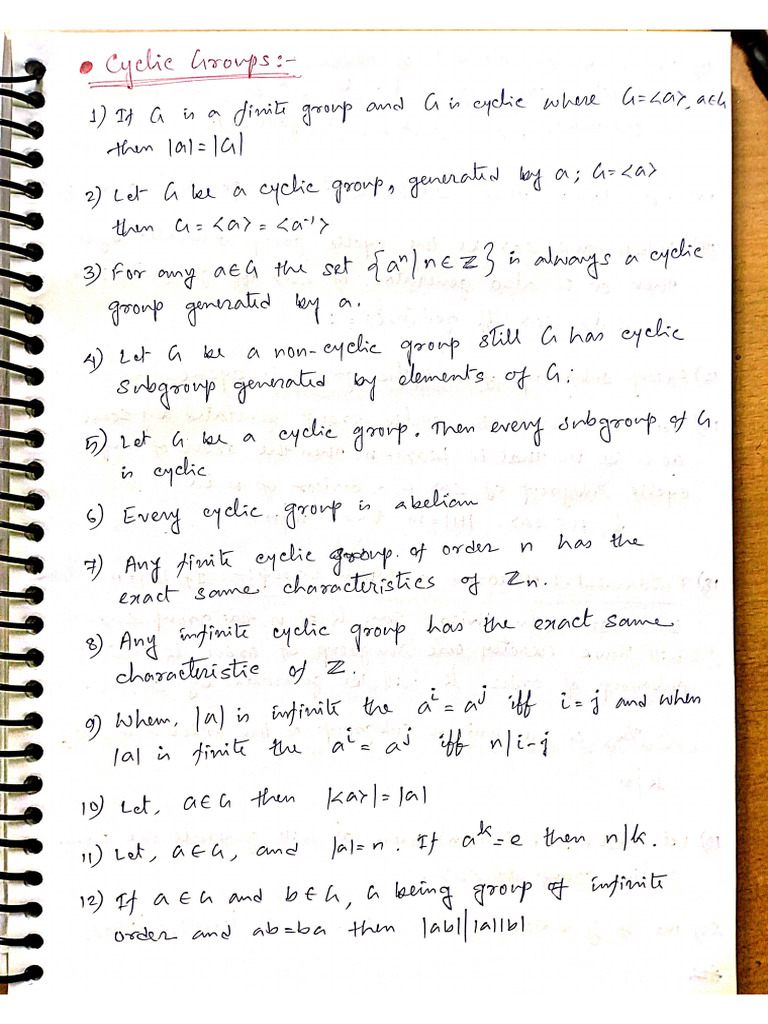 • Cyclic Groups:-
1) If G is a finite group and G is cyclic where G=<a>, a∈G
then |a|=|G|
2) Let G be a cyclic group, generated by a; G=<a>
then G=<a>=<a⁻¹>
3) For any a∈G the set {aⁿ|n∈Z} is always a cyclic
group generated by a.
4) Let G be a non-cyclic group still G has cyclic
subgroup generated by elements of G.
5) Let G be a cyclic group. Then every subgroup of G
is cyclic
6) Every cyclic group is abelian
7) Any finite cyclic group of order n has the
exact same characteristics of Zn.
8) Any infinite cyclic group has the exact same
characteristic of Z.
9) When, |a| is infinite the aⁱ = aʲ iff i=j and when
|a| is finite the aⁱ = aʲ iff n|i-j
10) Let, a∈G then |<a>|=|a|
11) Let, a∈G, and |a|=n. If aᵏ=e then n|k.
12) If a∈G and b∈G, G being group of infinite
order and ab=ba then |ab|||a||b|